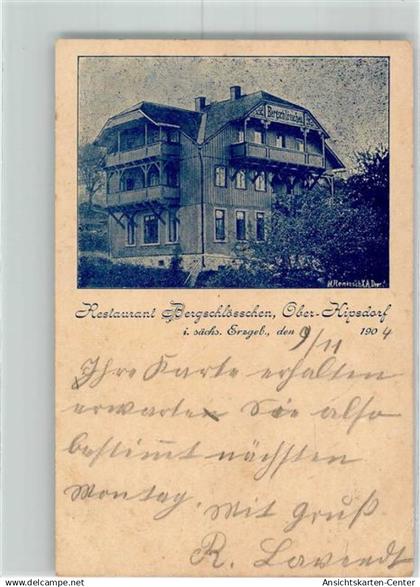 Bergschlösschen
Restaurant Bergschlösschen, Ober-Kipsdorf
i. sächs. Erzgeb., den 9/11 1904
Ihre Karte erhalten
erwarten Sie also
bestimmt nächsten
Montag. Mit Gruß
R.
www.ansichtskarten-center.de
Ansichtskarten-Center